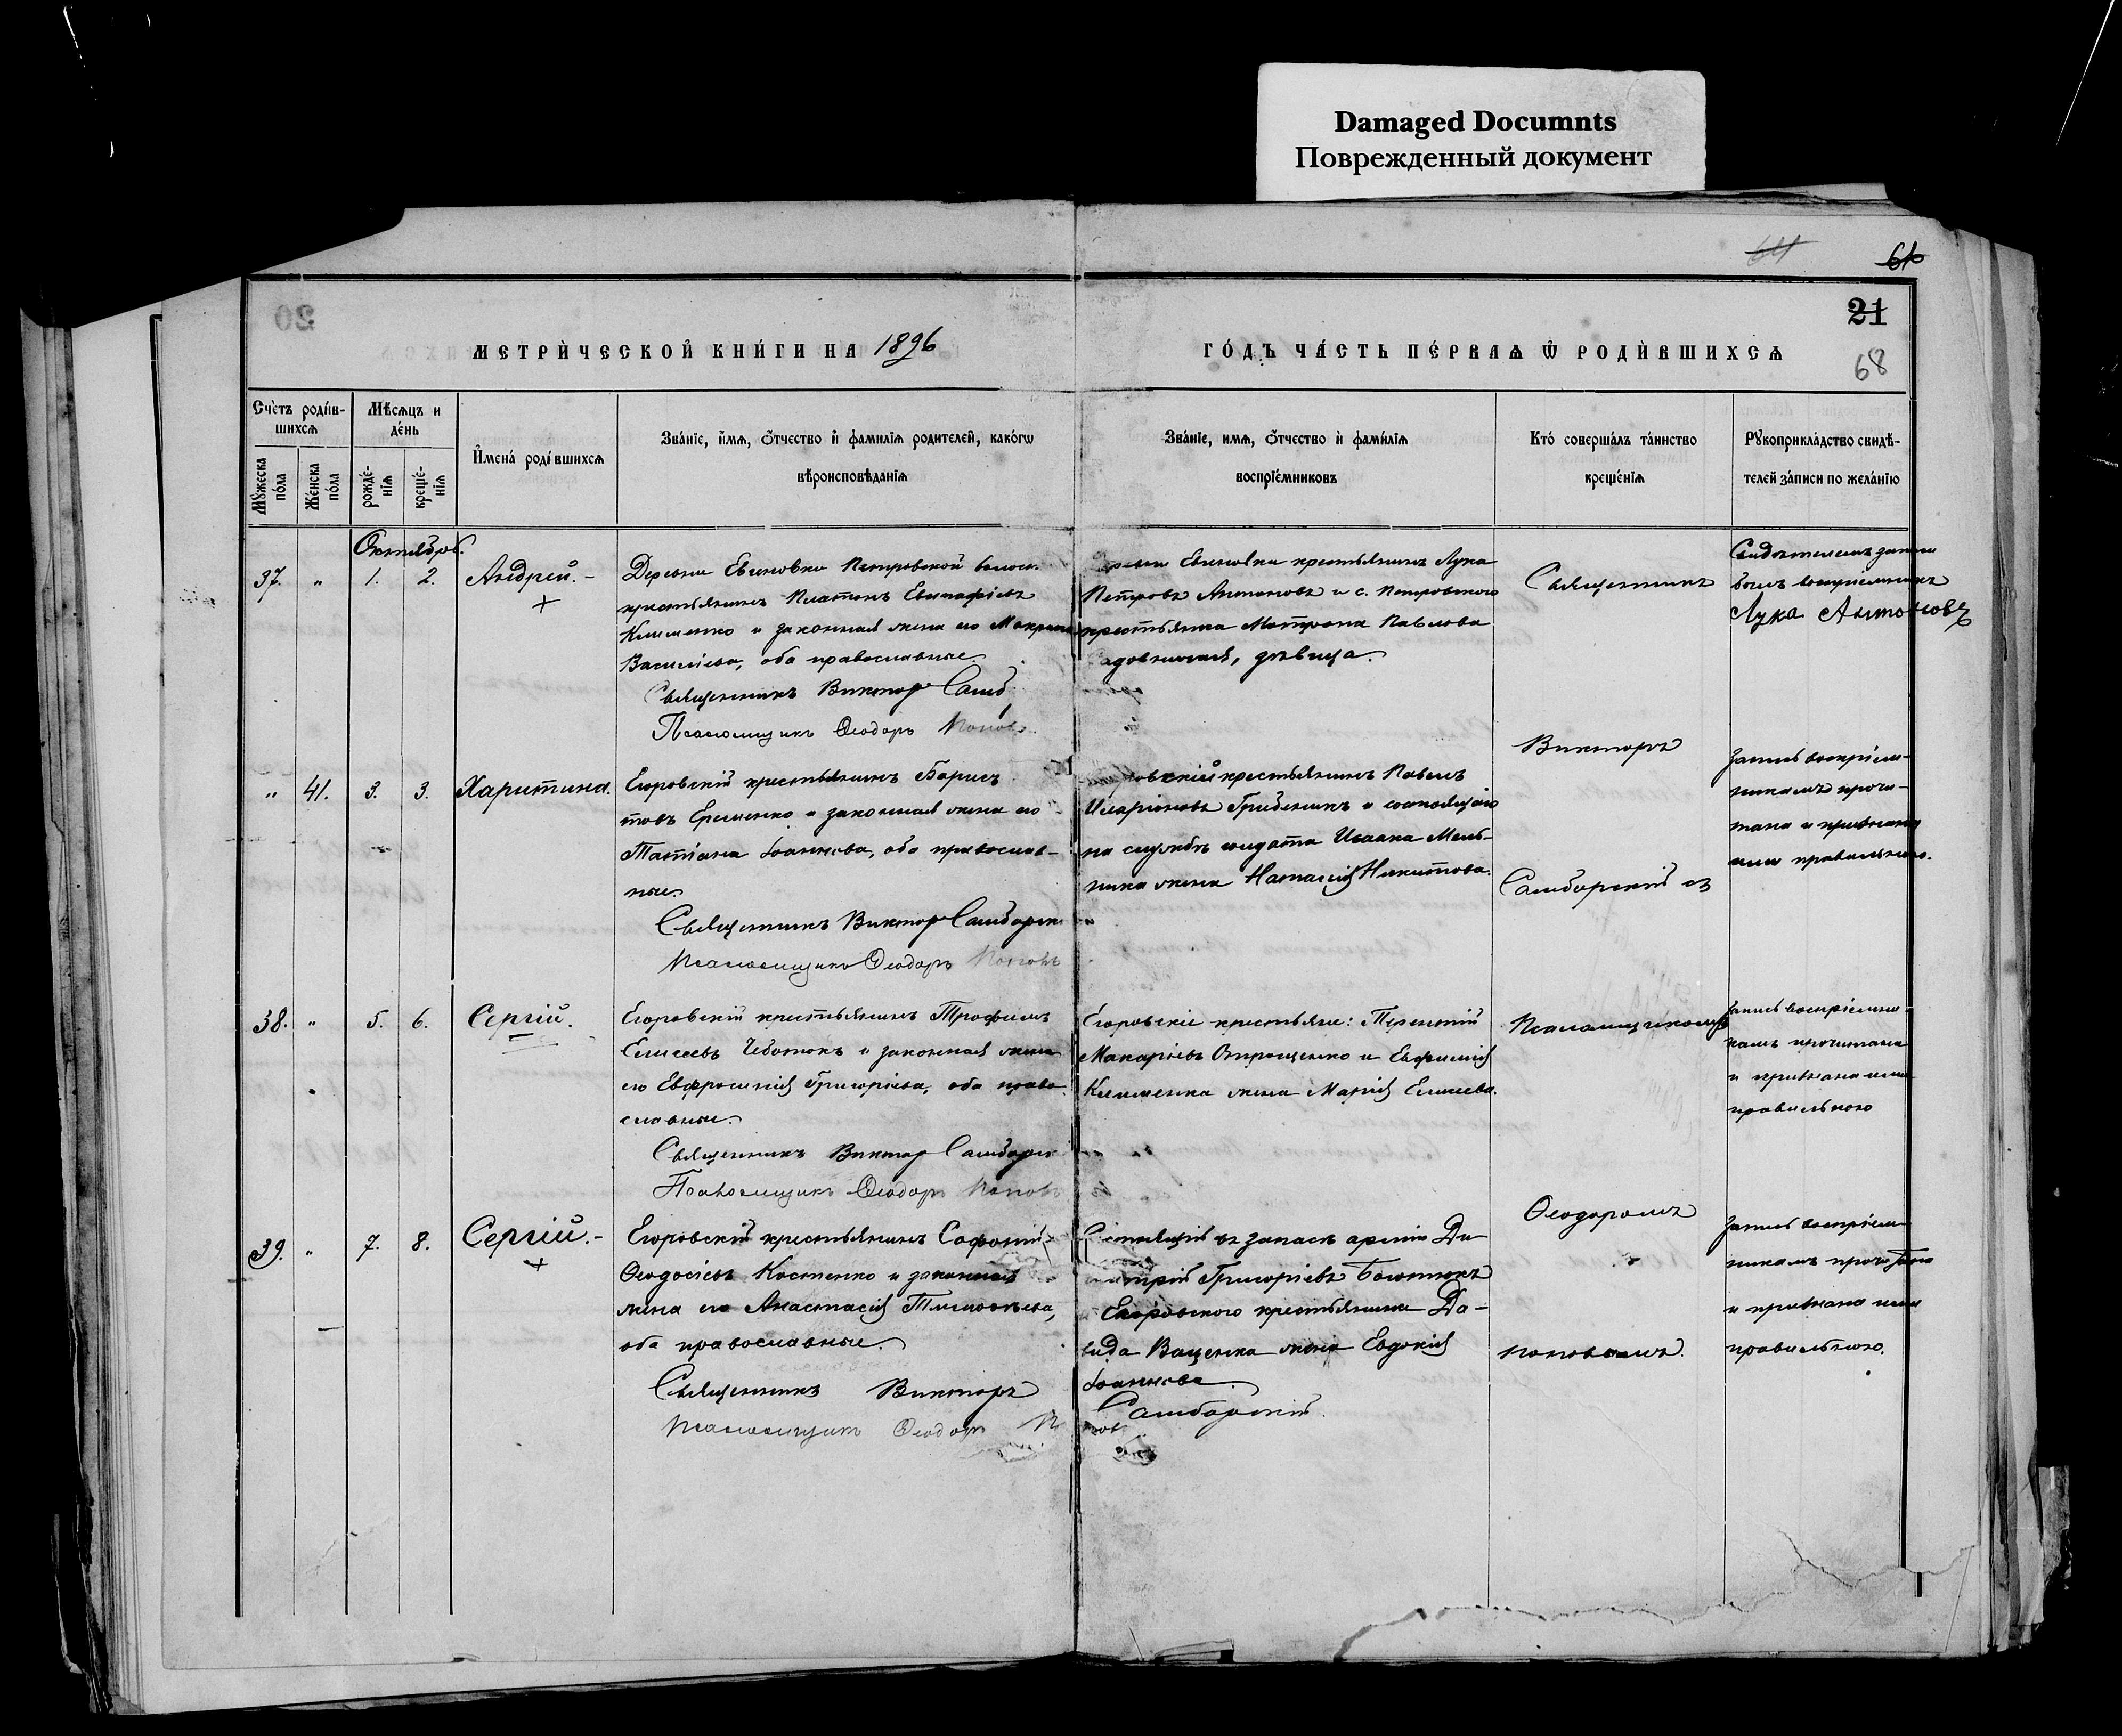 Damaged Documnts
Поврежденный документ
64
61
20
21
68
МЕТРИ́ЧЕСКОЙ КНИ́ГИ НА 1896
ГО́ДЪ ЧА́СТЬ ПЕ́РВАѦ Ѡ҆ РОДИ́ВШИХСѦ
Сче́тъ роди́в-
шихсѧ
Мꙋ́жеска
по́ла
Же́нска
по́ла
Мѣ́сѧцъ и
де́нь
рожде́-
нїѧ
креще́-
нїѧ
И҆мена́ роди́вшихсѧ
Зва́нїе, и҆́мѧ, ѻ҆́тчество и҆ фами́лїѧ роди́телей, како́гѡ
вѣроисповѣ́данїѧ
Зва́нїе, имѧ, ѻ҆́тчество и҆ фами́лїѧ
воспрїе́мниковъ
Кто́ соверша́лъ та́инство
креще́нїѧ
Рꙋкоприкла́дство свидѣ́-
телей за́писи по жела́нїю
Октябрь.
37. " 1. 2. Андрей.
Деревни Евеновки Петровской волос.
крестьянинъ Платонъ
Клименко и законная жена его
Василіева, оба православные.
Священникъ Викторъ Самб
Псаломщикъ Ѳеодоръ Поповъ
Евеновки крестьянинъ Лука
Петровъ Антоновъ и с. Петровского
крестьянка Матрона Павлова
дѣвица.
Свидѣтелемъ записи
былъ воспріемникъ
Лука Антоновъ
" 41. 3. 3. Харитина.
Егоровскій крестьянинъ Борисъ
товъ Еременко и законная жена его
Татіана Іоаннова, оба православ-
ные.
Священникъ Викторъ Самборск
Псаломщикъ Ѳеодоръ Поповъ
крестьянинъ Павелъ
Иларіоновъ Гребеникъ и состоящаго
на службѣ солдата Исаака Мель-
ника жена Наталія Никитова.
Запись воспріем-
никамъ прочи-
тана и признана
ими правильною.
38. " 5. 6. Сергій.
Егоровскій крестьянинъ Трофимъ
Елисеевъ Чеботокъ и законная жена
его Евфросинія Григоріева, оба право-
славные.
Священникъ Викторъ Самборск
Псаломщикъ Ѳеодоръ Поповъ
Егоровскіе крестьяне: Терентій
Макаріевъ Опрощенко и Евфимія
Клименка жена Марія Елисеева.
Запись воспріемни-
камъ прочитана
и признана ими
правильною
39. " 7. 8. Сергій.
Егоровскій крестьянинъ Софоній
Ѳеодосіевъ Костенко и законная
жена его Анастасія Тимоѳеева,
оба православные.
Священникъ Викторъ
Самборскій.
Псаломщикъ Ѳеодоръ П
повъ
Состоящій въ запасѣ арміи Ди-
митрій Григоріевъ
Егоровского крестьянина Да-
вида Ващенка жена Евдокія
Іоаннова.
Запись воспріем-
никамъ прочитана
и признана ими
правильною.
Священникъ
Викторъ
Самборскій съ
Псаломщикомъ
Ѳеодоромъ
Поповымъ.